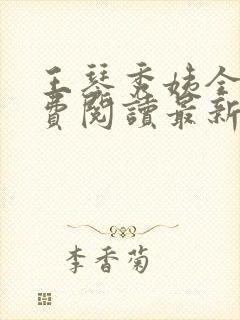 王琴秀姊全
費閱讀最新
李香菊